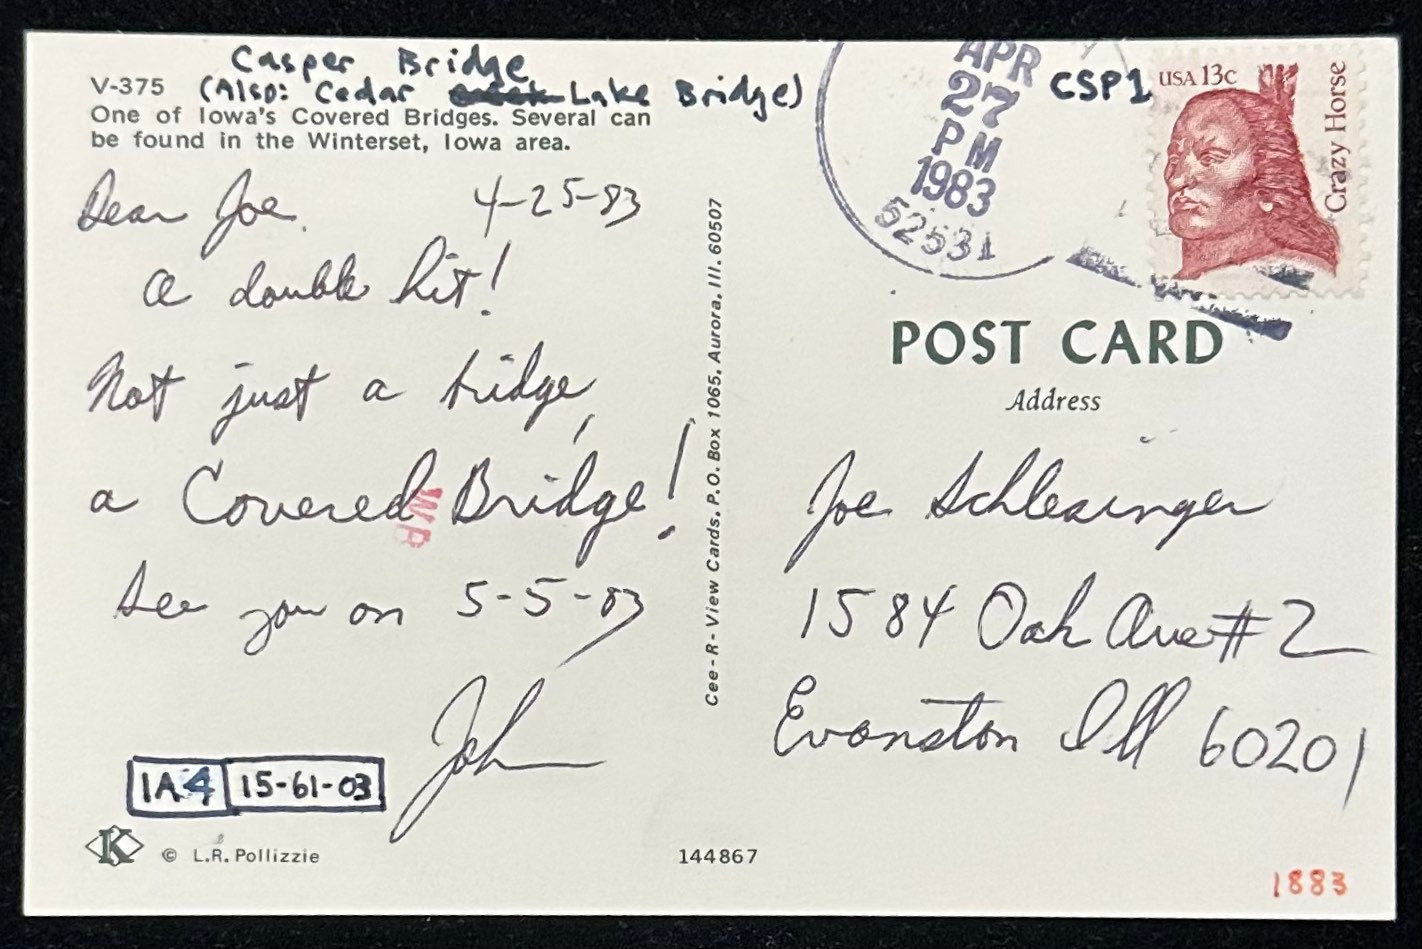 Casper Bridge
V-375 (Also: Cedar Lake Bridge)
One of Iowa's Covered Bridges. Several can
be found in the Winterset, Iowa area.
Dear Joe. 4-25-83
a double hit!
Not just a bridge,
a Covered Bridge!
WB
See you on 5-5-83
John
IA4 15-61-03
K © L.R. Pollizzie
144867
Cee-R-View Cards, P.O. Box 1065, Aurora, Ill. 60507
APR
27
PM
1983
52531
CSP1
USA 13c
Crazy Horse
POST CARD
Address
Joe Schlesinger
1584 Oak Ave #2
Evanston Ill 60201
1883